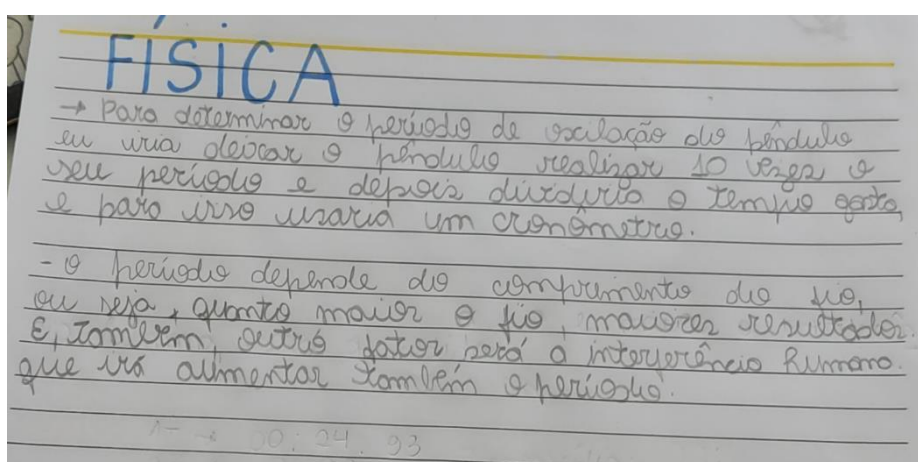 FÍSICA
→ Para determinar o período de oscilação do pêndulo
eu iria deixar o pêndulo realizar 10 vezes o
seu período e depois dividiria o tempo gasto,
e para isso usaria um cronômetro.
- O período depende do comprimento do fio,
ou seja, quanto maior o fio, maiores resultados.
E, também, outro fator será a interferência humana.
que irá aumentar também o período.
→ 00:24.93